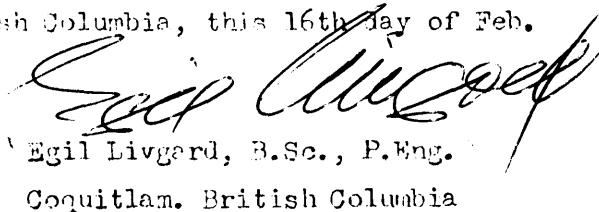 sh Columbia, this 16th day of Feb.
Egil Livgard
Egil Livgard, B.Sc., P.Eng.
Coquitlam. British Columbia